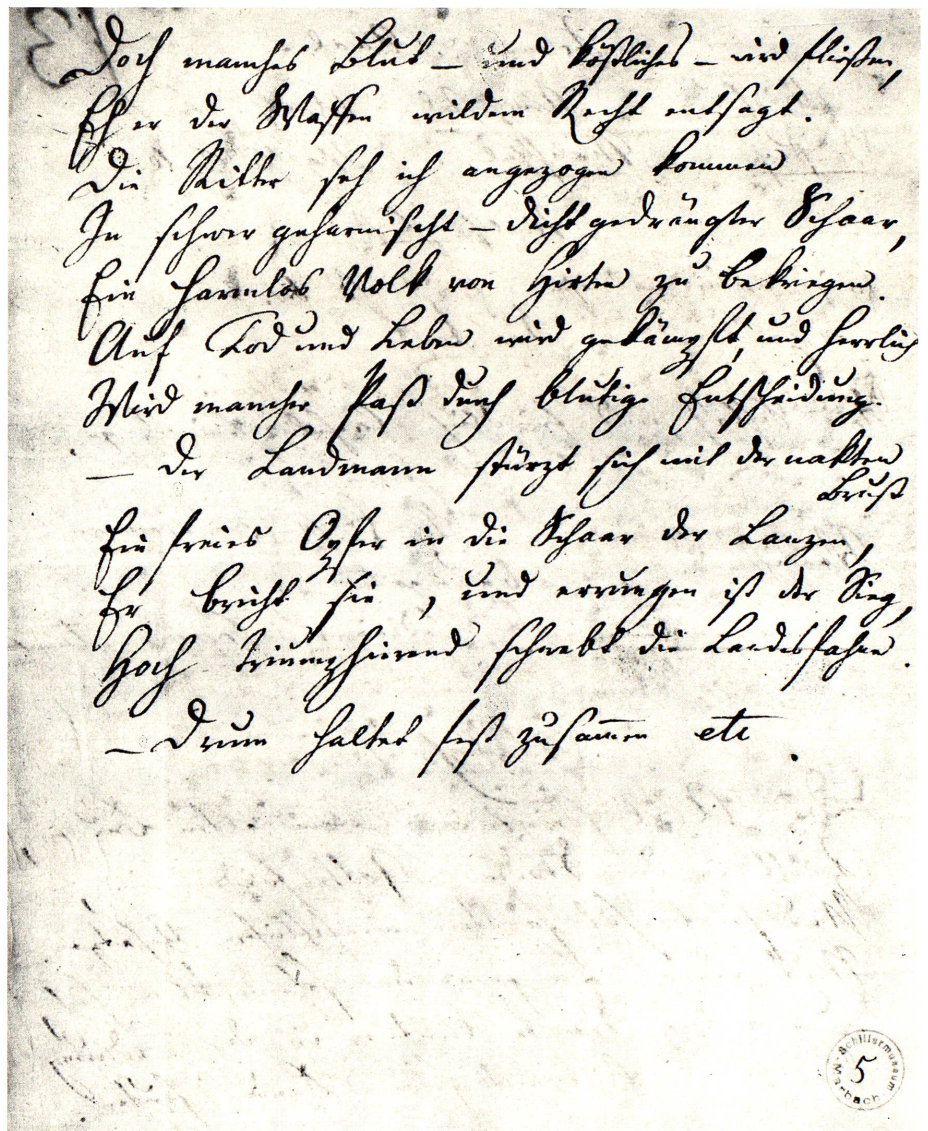 Doch manches Blut – und köstliches – wird fließen,
Eh er der Waffen wildem Recht entsagt.
Die Ritter seh ich angezogen kommen
In schwer geharnischt – dicht gedrängter Schaar,
Ein harmlos Volk von Hirten zu bekriegen.
Auf Tod und Leben wird gekämpft, und herrlich
Wird mancher Paß durch blutige Entscheidung.
– Der Landmann stürzt sich mit der nakten
Brust
Ein freies Opfer in die Schaar der Lanzen,
Er bricht sie, und errungen ist der Sieg,
Hoch triumphierend schwebt die Landesfahne.
– Drum haltet fest zusammen etc.
Schillermuseum
5
Marbach